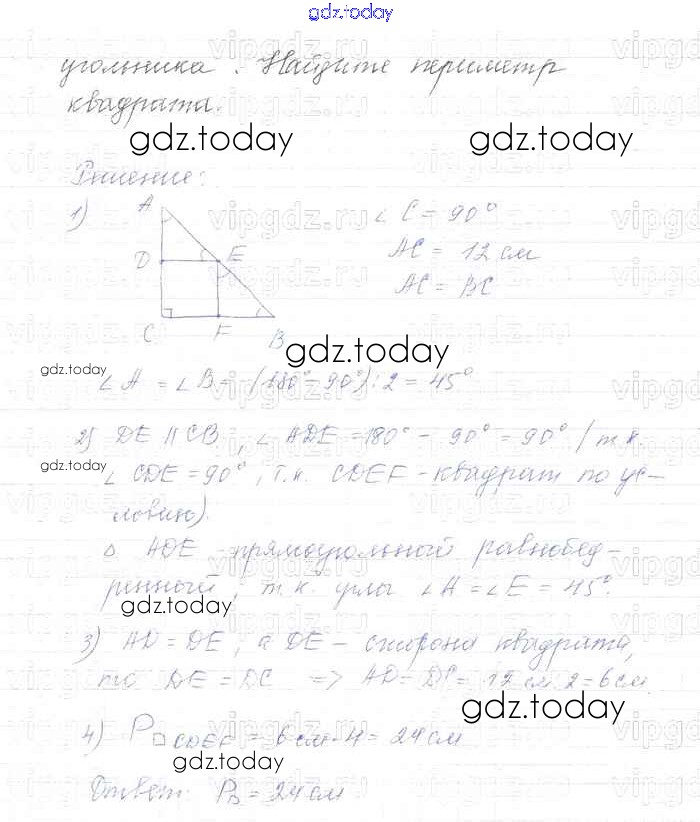 gdz.today
угольника. Найдите периметр
квадрата.
gdz.today gdz.today
Решение:
1) A ∠C = 90°
D E AC = 12 см
AC = BC
C F B
gdz.today
gdz.today
∠A = ∠B = (180° - 90°) : 2 = 45°
2) DE || CB, ∠ADE = 180° - 90° = 90° (т.к.
gdz.today
∠CDE = 90°, т.к. CDEF - квадрат по ус-
ловию).
△ ADE - прямоугольный равнобед-
ренный, т.к. углы ∠A = ∠E = 45°.
gdz.today
3) AD = DE, а DE - сторона квадрата,
то DE = DC => AD = DC = 12 см : 2 = 6 см
gdz.today
4) P□CDEF = 6 см · 4 = 24 см
gdz.today
Ответ: P□ = 24 см